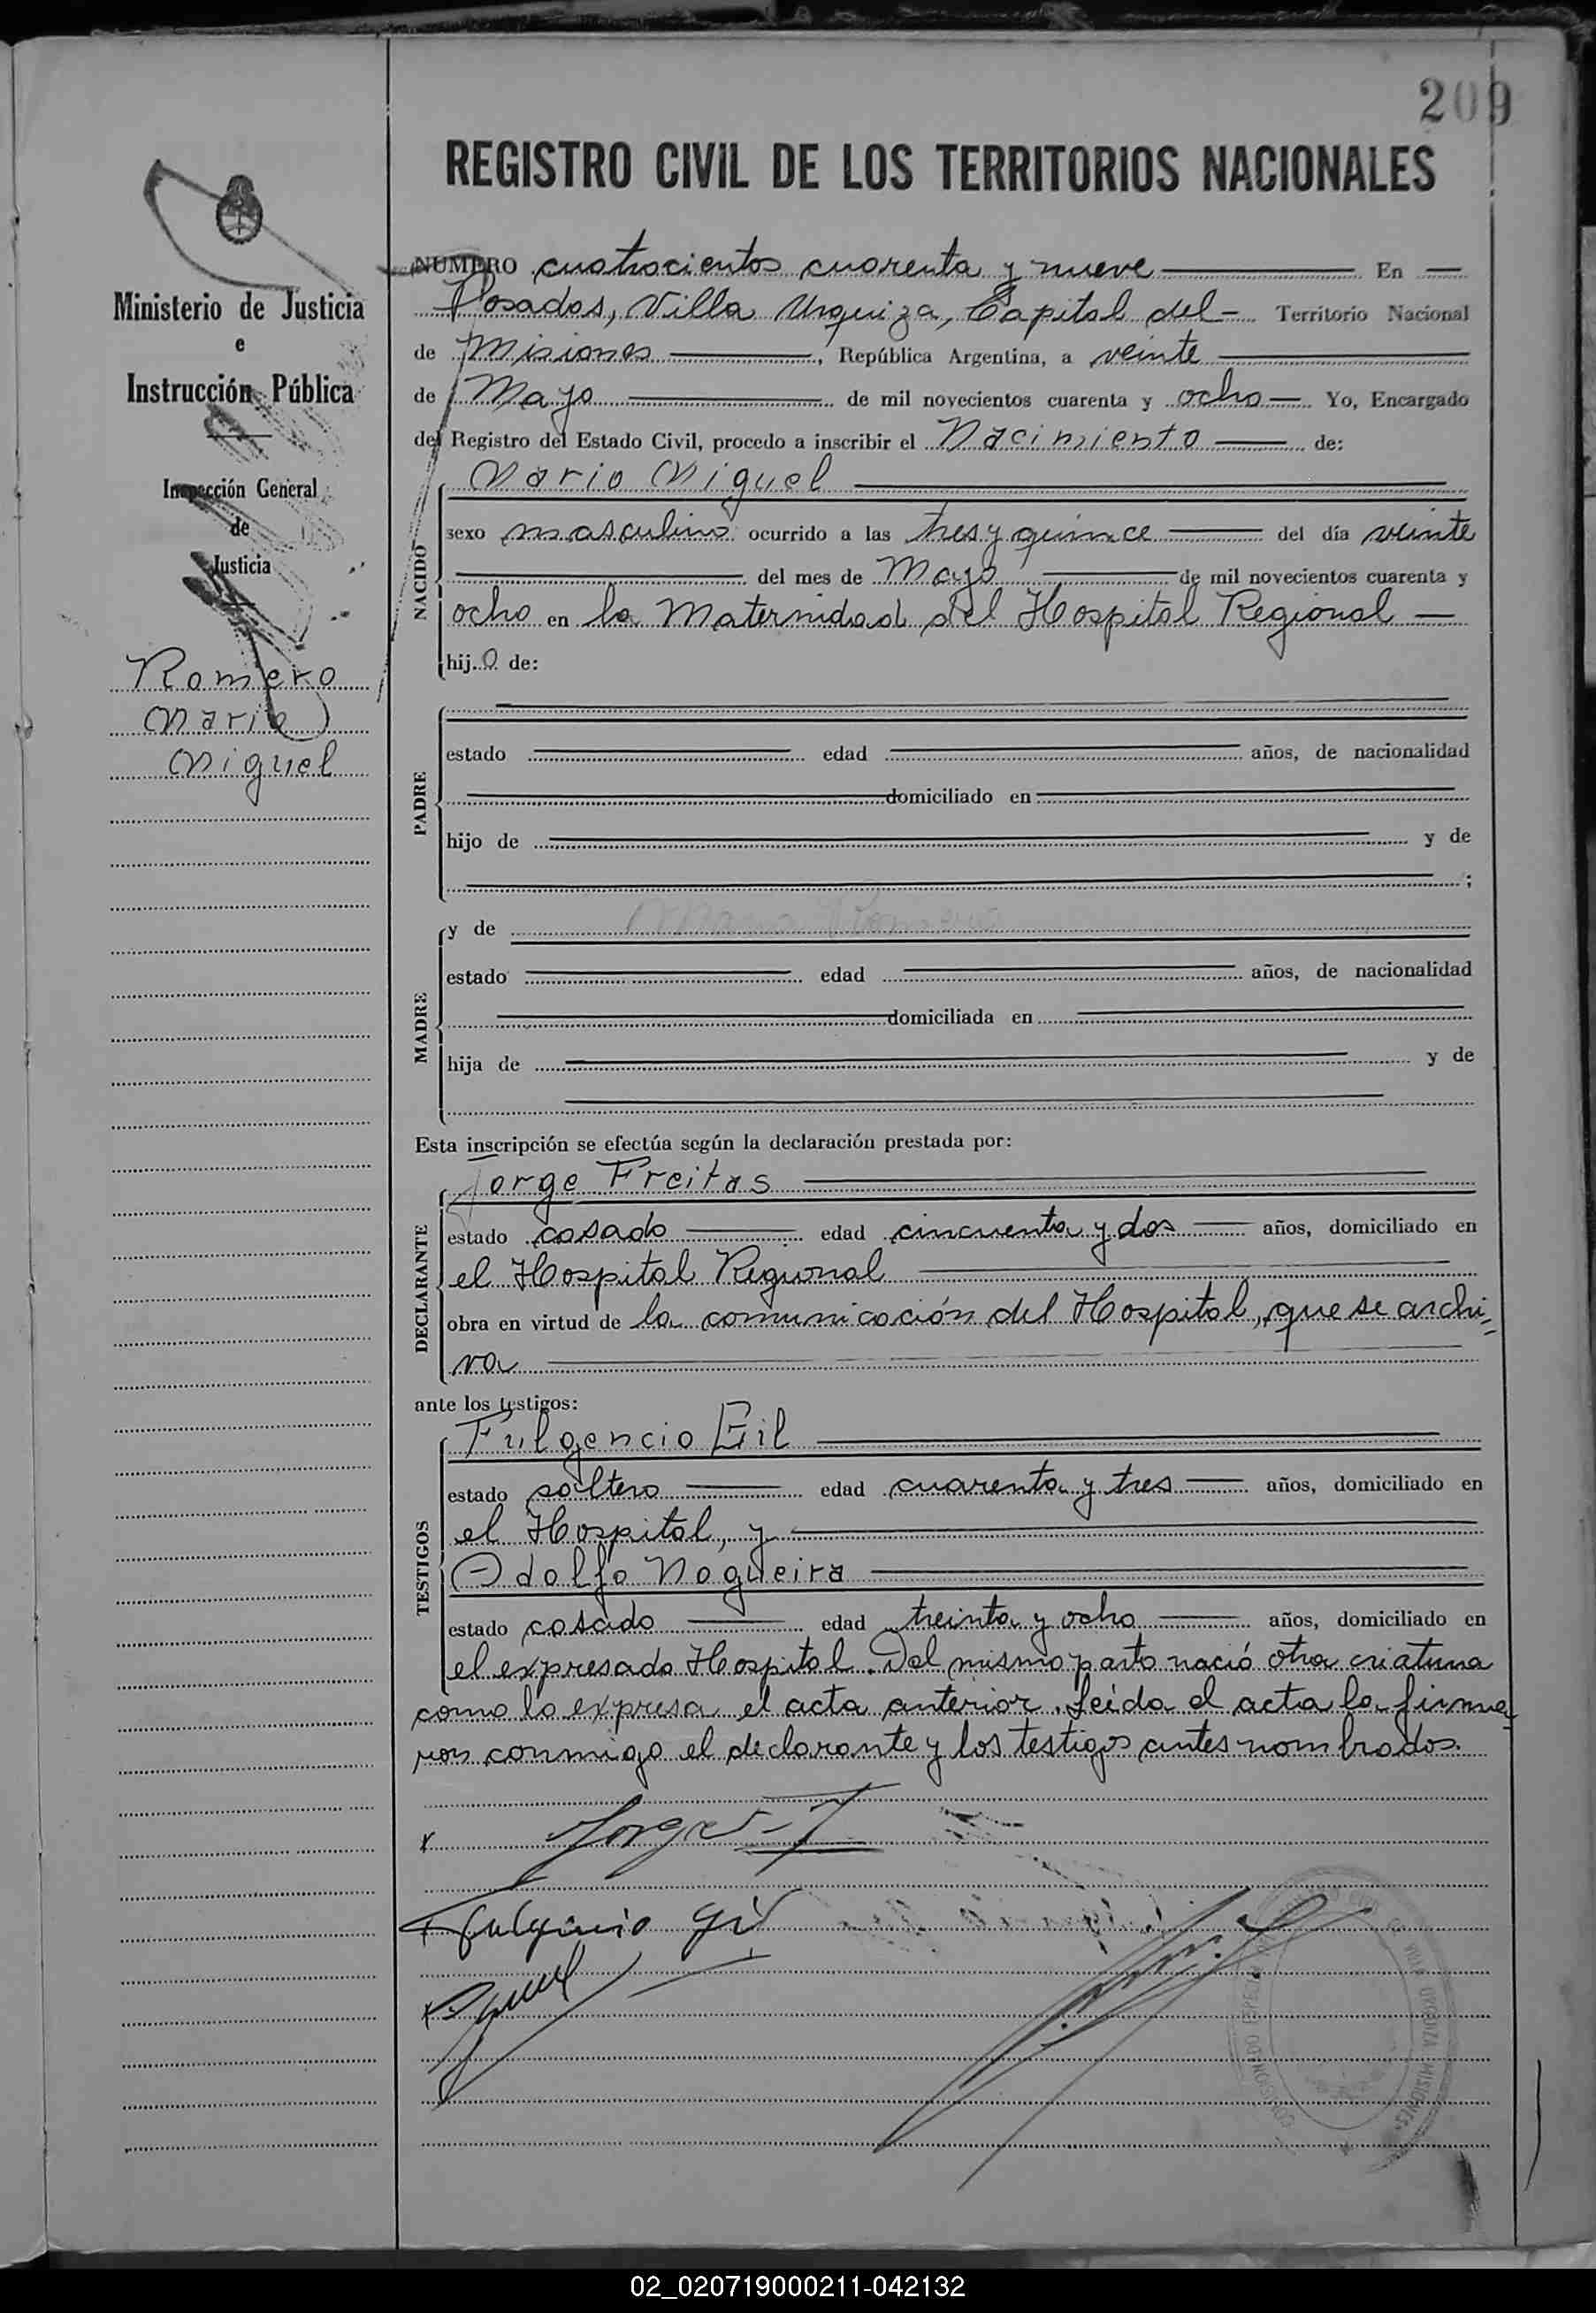 209
REGISTRO CIVIL DE LOS TERRITORIOS NACIONALES
Ministerio de Justicia
e
Instrucción Pública
Inspección General
de
Justicia
Romero
Mario
Miguel
NUMERO cuatrocientos cuarenta y nueve En
Posadas, Villa Urquiza, Capital del Territorio Nacional
de Misiones, República Argentina, a veinte
de Mayo de mil novecientos cuarenta y ocho Yo, Encargado
del Registro del Estado Civil, procedo a inscribir el Nacimiento de:
NACIDO
Mario Miguel
sexo masculino ocurrido a las tres y quince del día veinte
del mes de Mayo de mil novecientos cuarenta y
ocho en la Maternidad del Hospital Regional
hij.o de:
PADRE
estado edad años, de nacionalidad
domiciliado en
hijo de y de
;
MADRE
y de Romero
estado edad años, de nacionalidad
domiciliada en
hija de y de
Esta inscripción se efectúa según la declaración prestada por:
DECLARANTE
Jorge Freitas
estado casado edad cincuenta y dos años, domiciliado en
el Hospital Regional
obra en virtud de la comunicación del Hospital, que se archi
va
ante los testigos:
TESTIGOS
Fulgencio Gil
estado soltero edad cuarenta y tres años, domiciliado en
el Hospital, y
Adolfo Nogueira
estado casado edad treinta y ocho años, domiciliado en
el expresado Hospital. Del mismo parto nació otra criatura
como lo expresa el acta anterior. Leída el acta la firma
ron conmigo el declarante y los testigos antes nombrados.
Jorge F
Fulgencio Gil
VILLA URQUIZA MISIONES
02_020719000211-042132